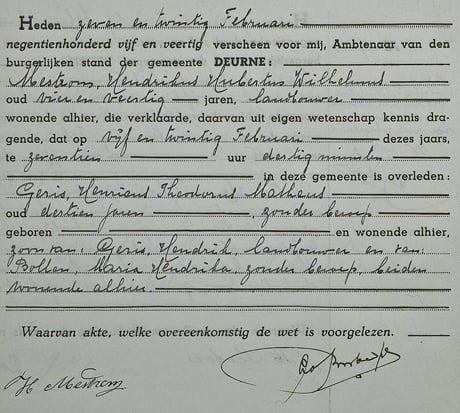 Heden zeven en twintig Februari
negentienhonderd vijf en veertig verscheen voor mij, Ambtenaar van den
burgerlijken stand der gemeente DEURNE:
Mestrom, Hendrikus Hubertus Wilhelmus
oud vier en veertig jaren, landbouwer
wonende alhier, die verklaarde, daarvan uit eigen wetenschap kennis dra-
gende, dat op vijf en twintig Februari dezes jaars,
te zeventien uur dertig minuten
in deze gemeente is overleden:
Geris, Henricus Theodorus Matheus
oud dertien jaren, zonder beroep
geboren en wonende alhier,
zoon van: Geris, Hendrik, landbouwer en van:
Bollen, Maria Hendrika, zonder beroep, beiden
wonende alhier.
Waarvan akte, welke overeenkomstig de wet is voorgelezen.
H Mestrom